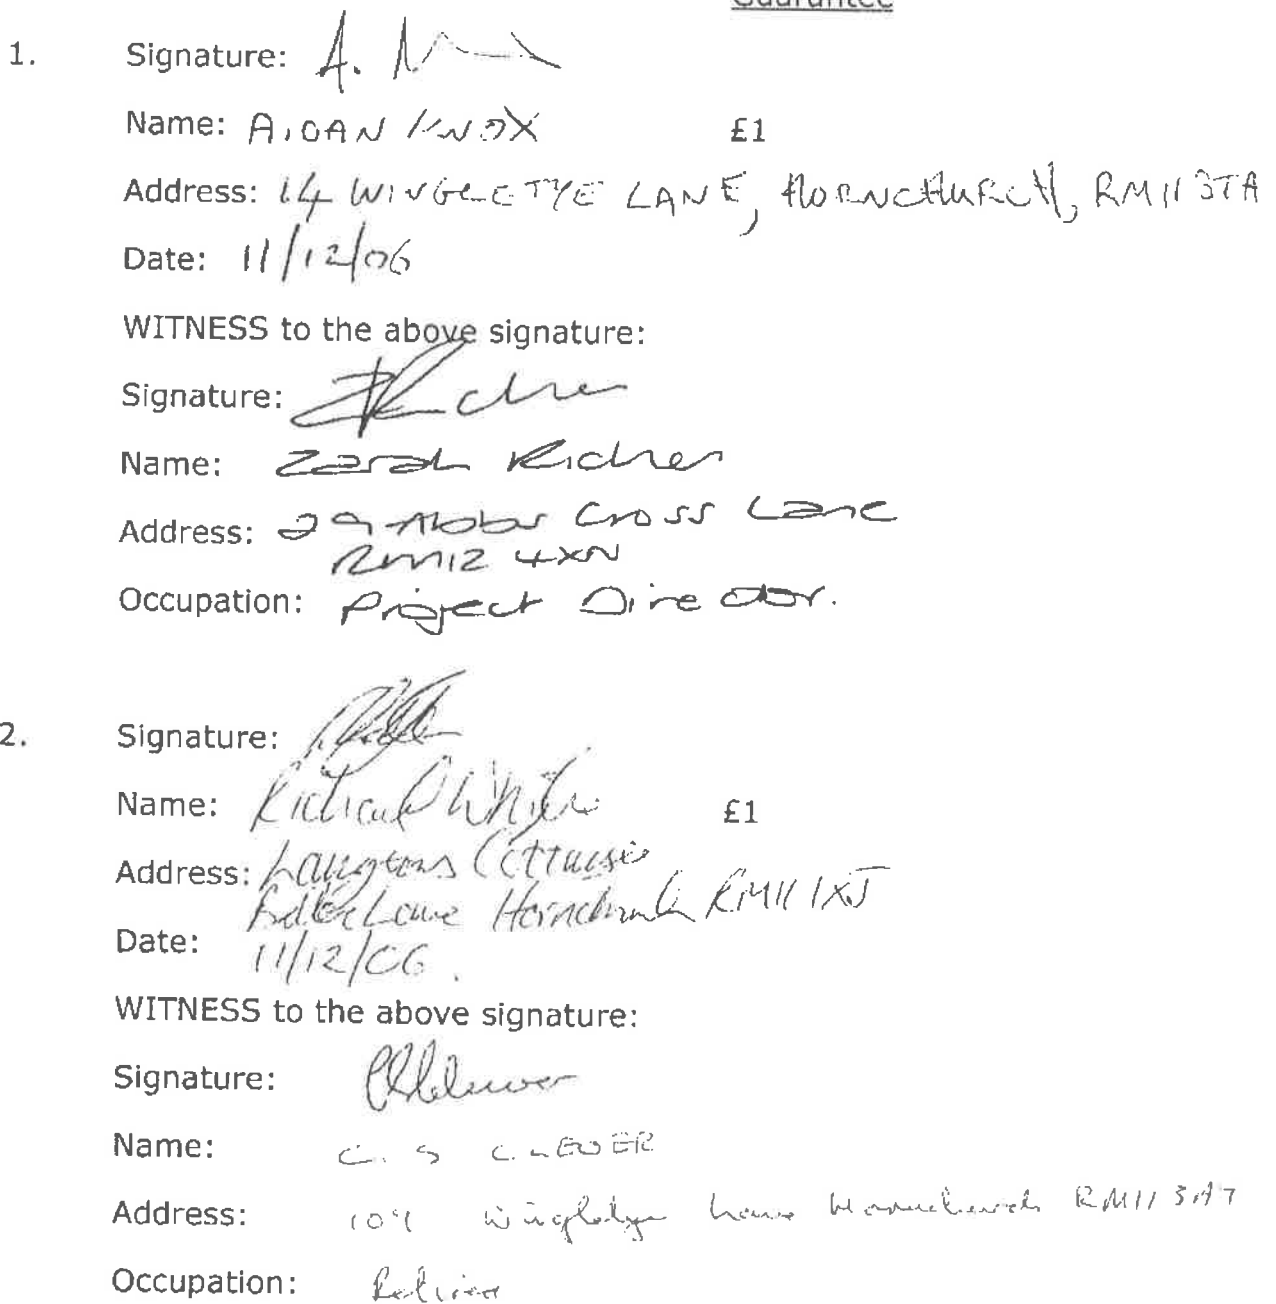 Guarantee
1. Signature: A.
Name: AIDAN KNOX £1
Address: 14 WINGLETYE LANE, HORNCHURCH, RM11 3TA
Date: 11/12/06
WITNESS to the above signature:
Signature:
Name: Zarah Richer
Address: 29 Abbs Cross Lane
RM12 4XN
Occupation: Project Director.
2. Signature:
Name: Richard White £1
Address: Langtons Cottage
Billet Lane Hornchurch RM11 1XJ
Date: 11/12/06.
WITNESS to the above signature:
Signature:
Name: C. S CLEVER
Address: Wingletye Lane Hornchurch RM11 3AT
Occupation: Retired